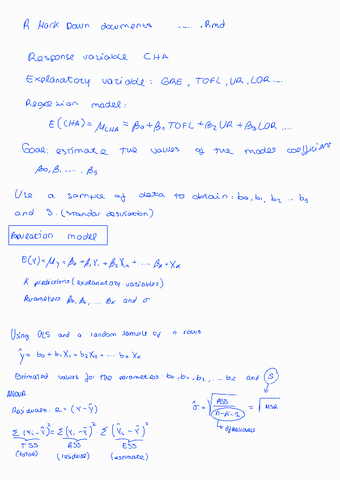 R Mark Down documents ..... .Rmd
Response variable CHA
Explanatory variable: GRE, TOFL, UR, LOR....
Regression model:
E(CHA) = μCHA = β0 + β1 TOFL + β2 UR + β3 LOR ....
Goal: estimate the values of the model coefficient
β0, β1 ..... β5
Use a sample of data to obtain: b0, b1, b2 ... b5
and S. (standar desviation)
Population model
E(Y) = μy = β0 + β1X1 + β2X2 + ... βKXK
K predictions (explanatory variables)
Parameters β0, β1, ... βK and σ
Using OLS and a random sample of n rows
ŷ = b0 + b1X1 + b2X2 + ... bKXK
Estimated values for the parameters: b0, b1, b2, ... bK and S
ANOVA
Residuals: e = (Y - Ŷ)
σ̂ = √(RSS / (n-K-1)) = √MSR
Σ(Yi - Ȳ)² = Σ(Yi - Ŷ)² Σ(Ŷi - Ȳ)²
TSS RSS ESS
(total) (residual) (estimate)